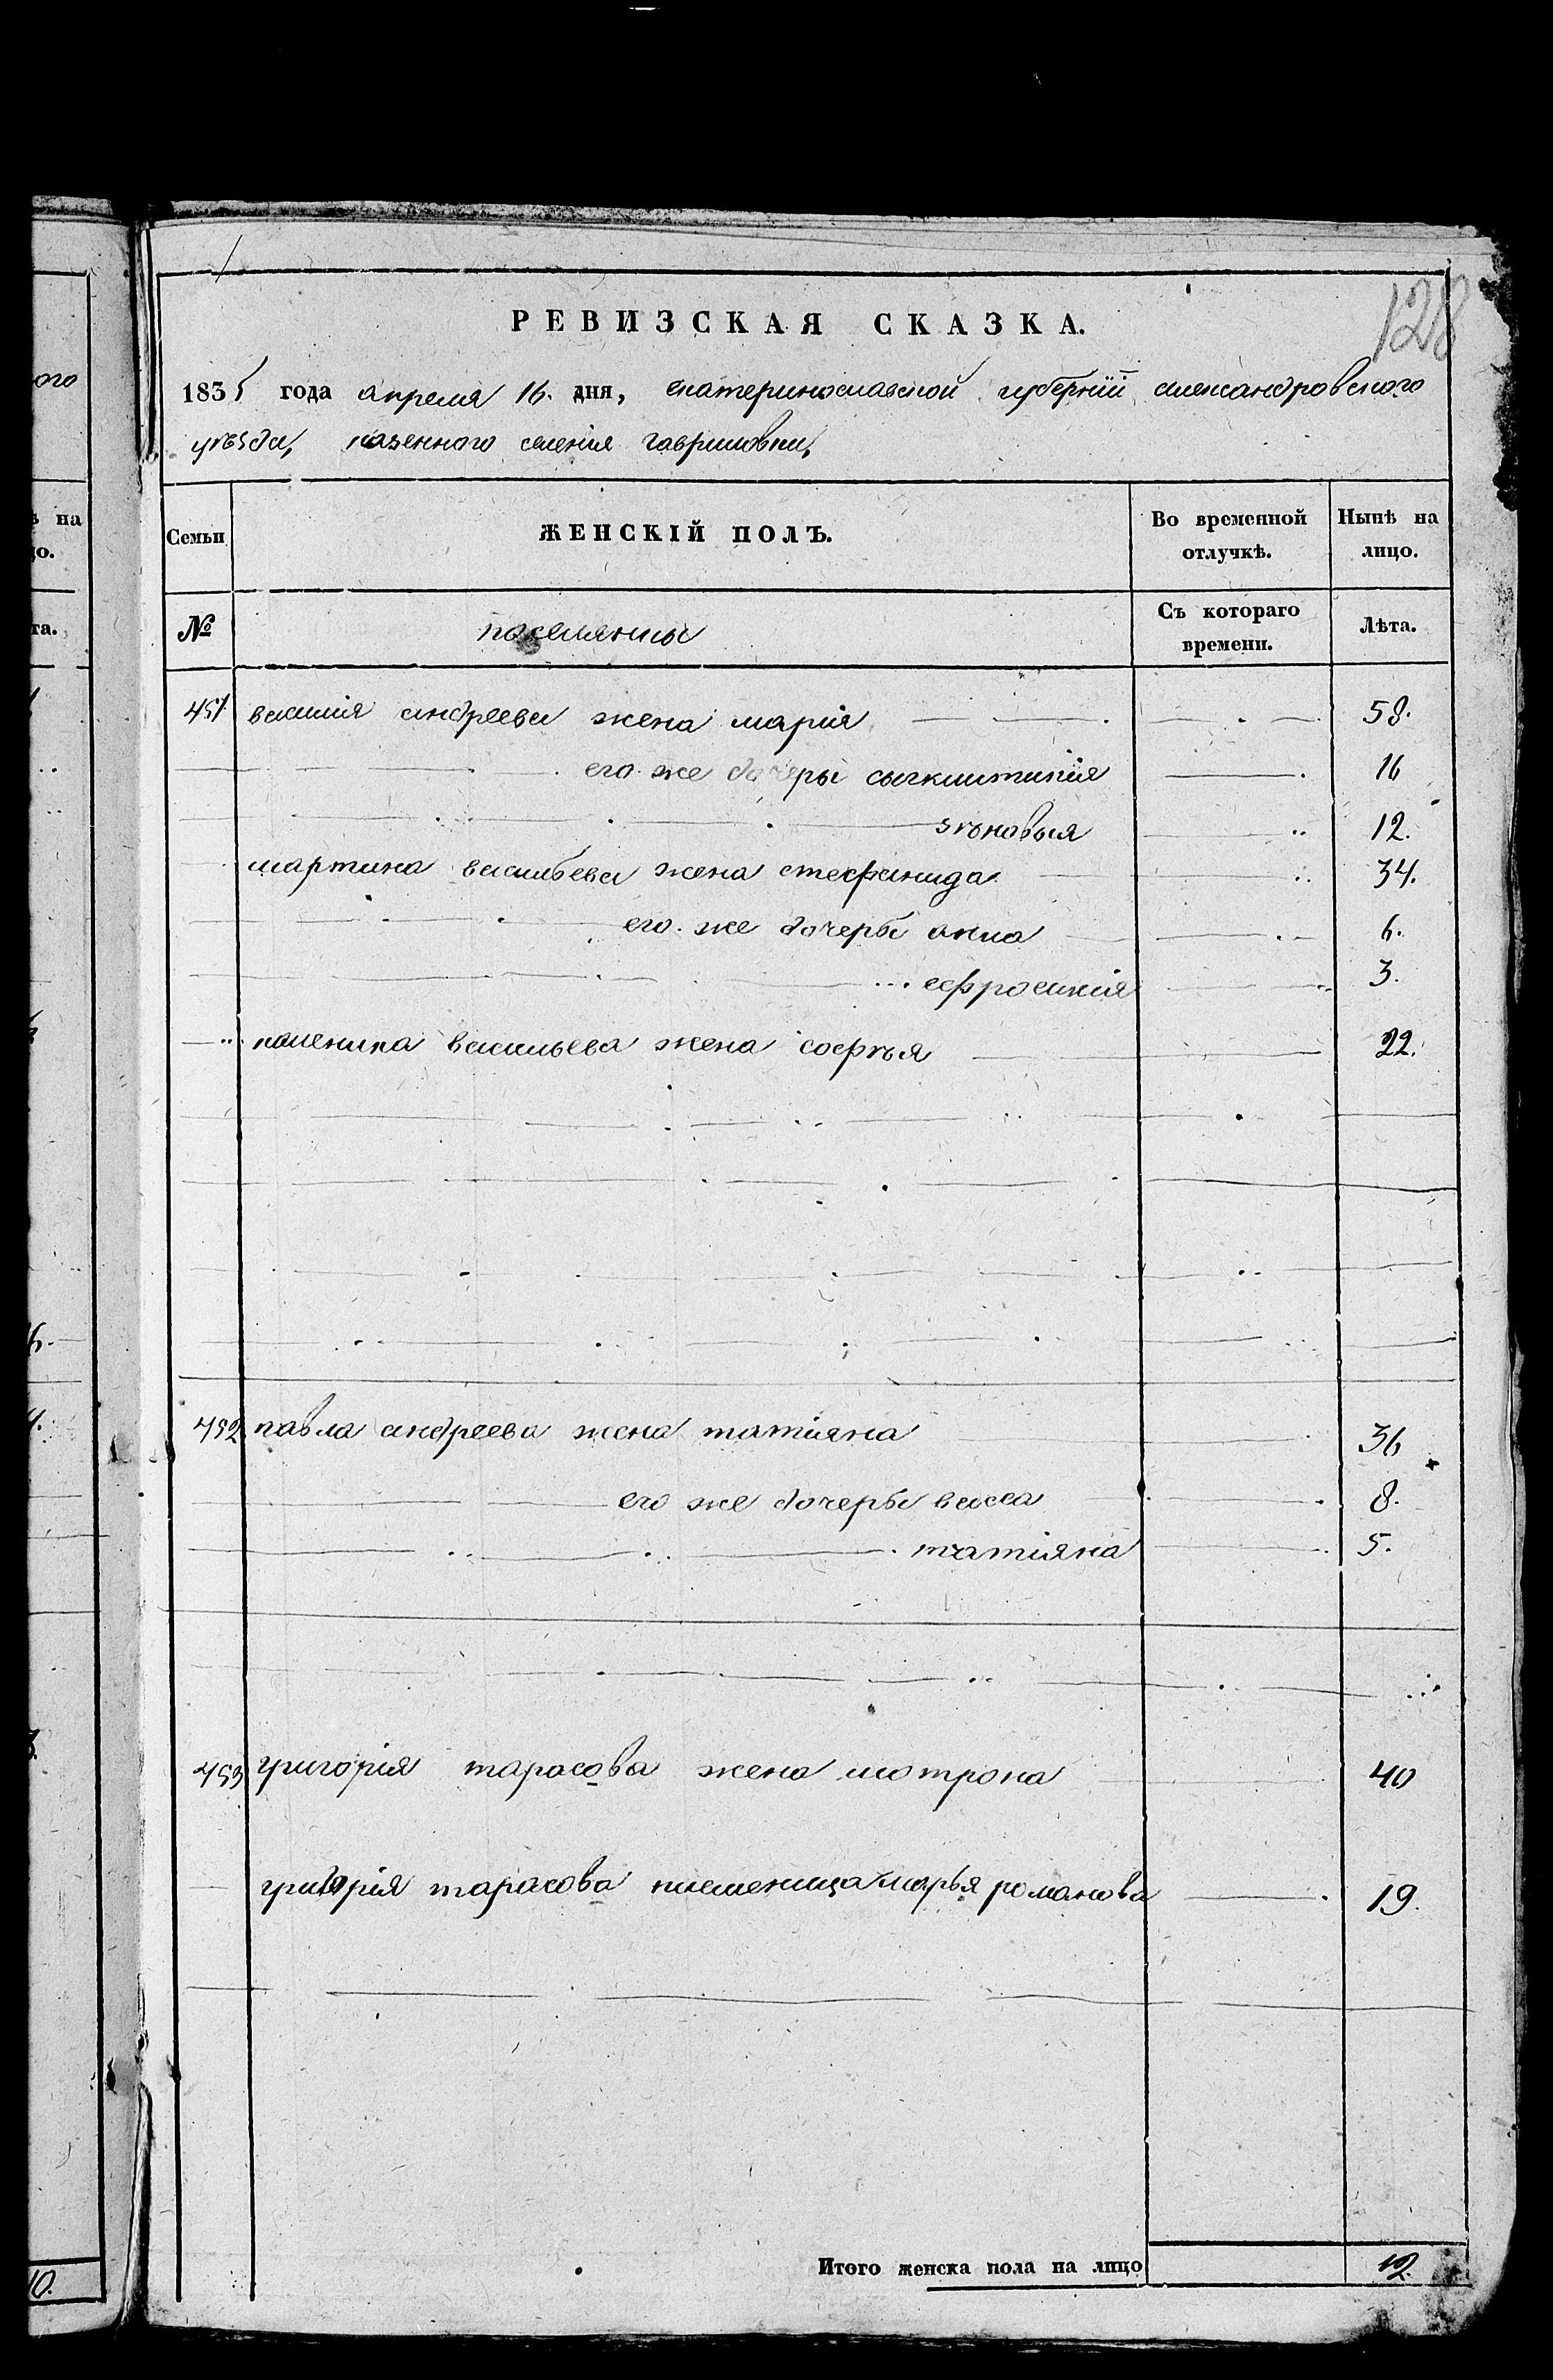 128
РЕВИЗСКАЯ СКАЗКА.
1835 года апреля 16. дня, екатеринославской губерніи александровского
уѣзда, казенного селенія гавриловки,
Семьи
ЖЕНСКІЙ ПОЛЪ.
Во временной отлучкѣ.
Нынѣ на лицо.
№
поселянны
Съ котораго времени.
Лѣта.
451 василия андреева жена марія 58.
его же дочеры 16
зѣновыя 12.
мартина васильева жена стефанида 34.
его же дочеры анна 6.
ефросинія 3.
каленика васильева жена софѣя 22.
452 павла андреева жена татіяна 36
его же дочеры васса 8.
татіяна 5.
453 григорія тарасова жена мотрона 40
григорія тарасова племеница марья романова 19.
Итого женска пола на лицо 12.
ого
ѣ на
цо.
та.
10.